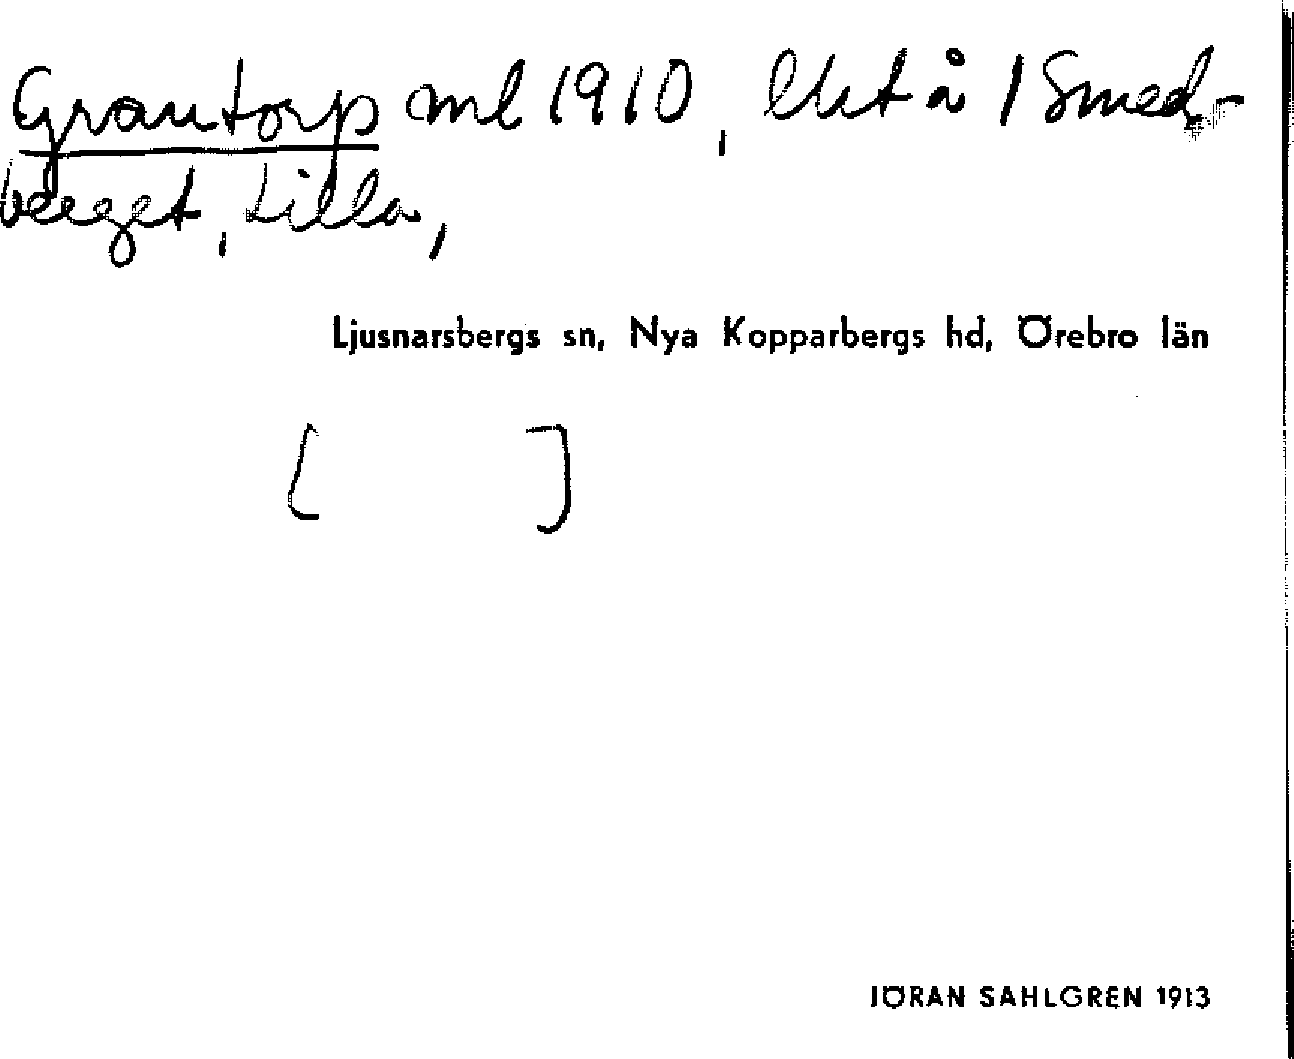 Grantorp ml 1910, litet å 1 Smed-
berget, Lilla,
Ljusnarsbergs sn, Nya Kopparbergs hd, Örebro län
[ ]
JÖRAN SAHLGREN 1913